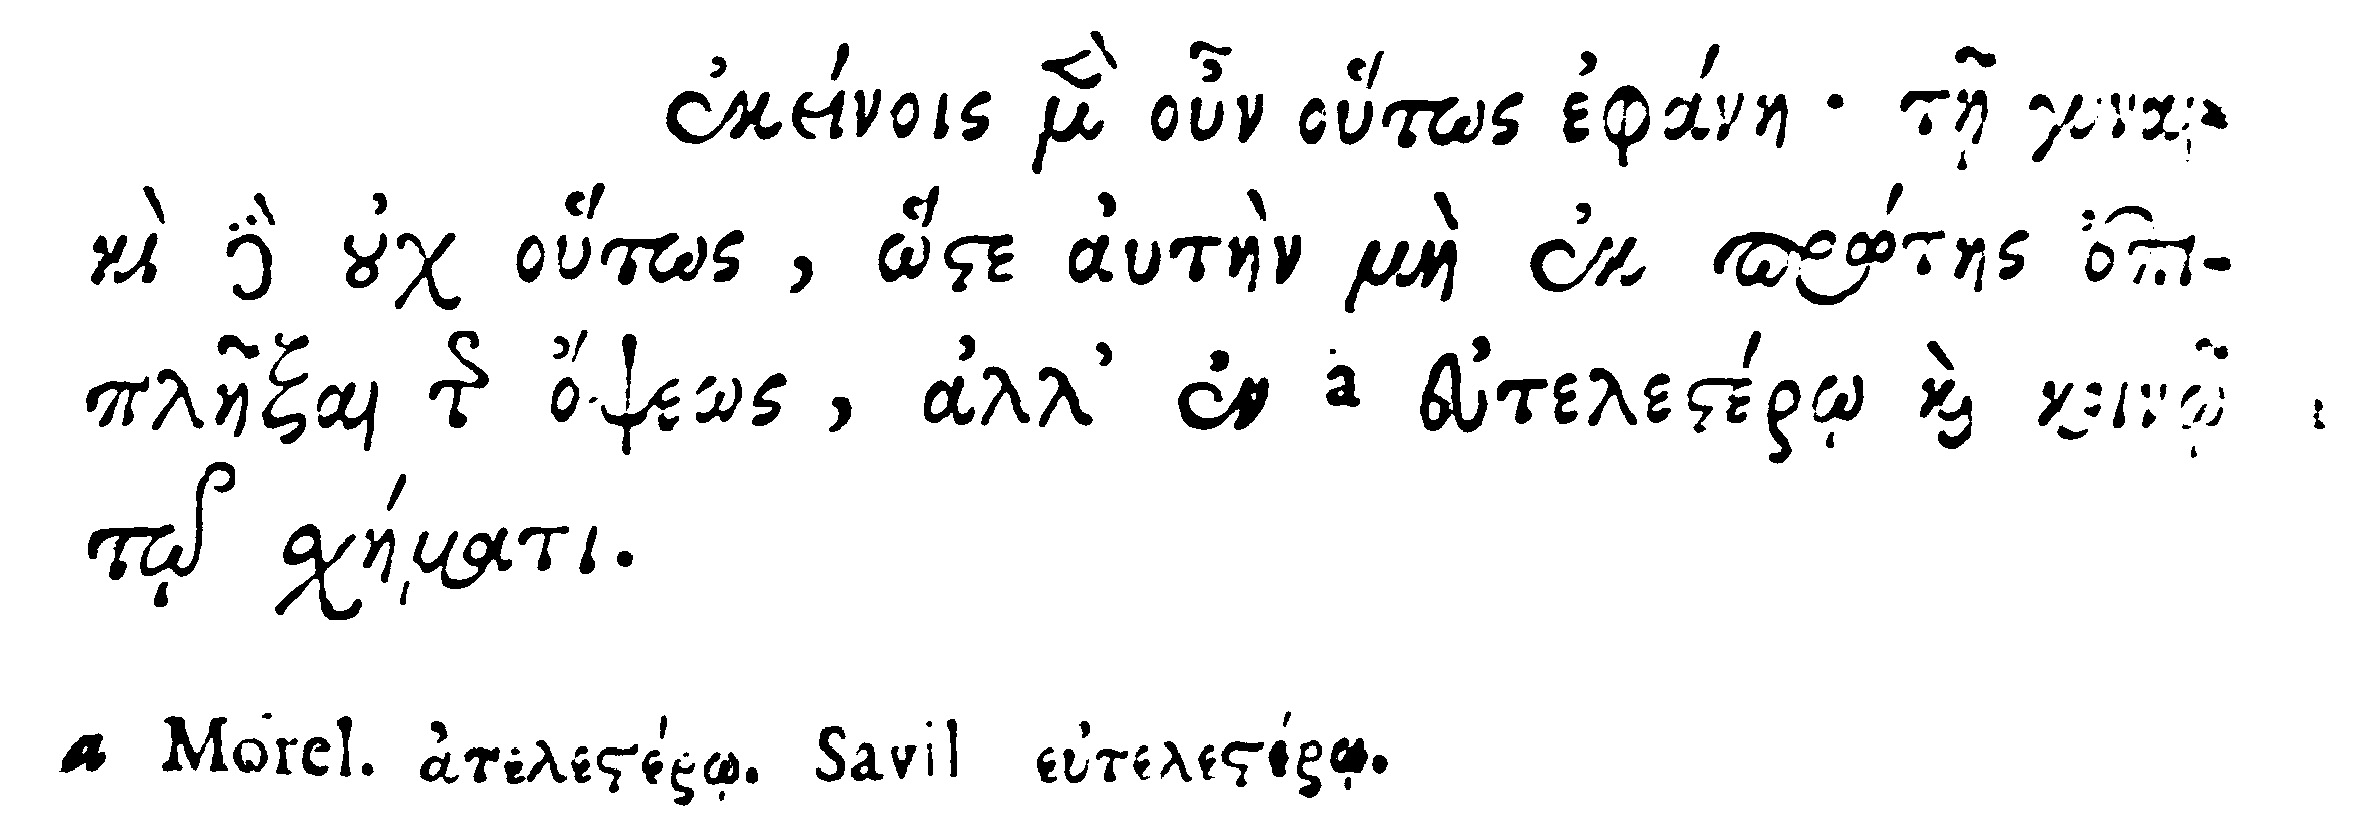 ἐκείνοις μὲν οὖν οὕτως ἐφάνη· τῇ γυναι-
κὶ δὲ οὐχ οὕτως, ὥστε αὐτὴν μὴ ἐκ πρώτης ἐπι-
πλῆξαι τῆς ὄψεως, ἀλλ' ἐν a εὐτελεστέρῳ καὶ κοινῷ
τῷ σχήματι.
a Morel. ἀτελεστέρῳ. Savil εὐτελεστέρῳ.